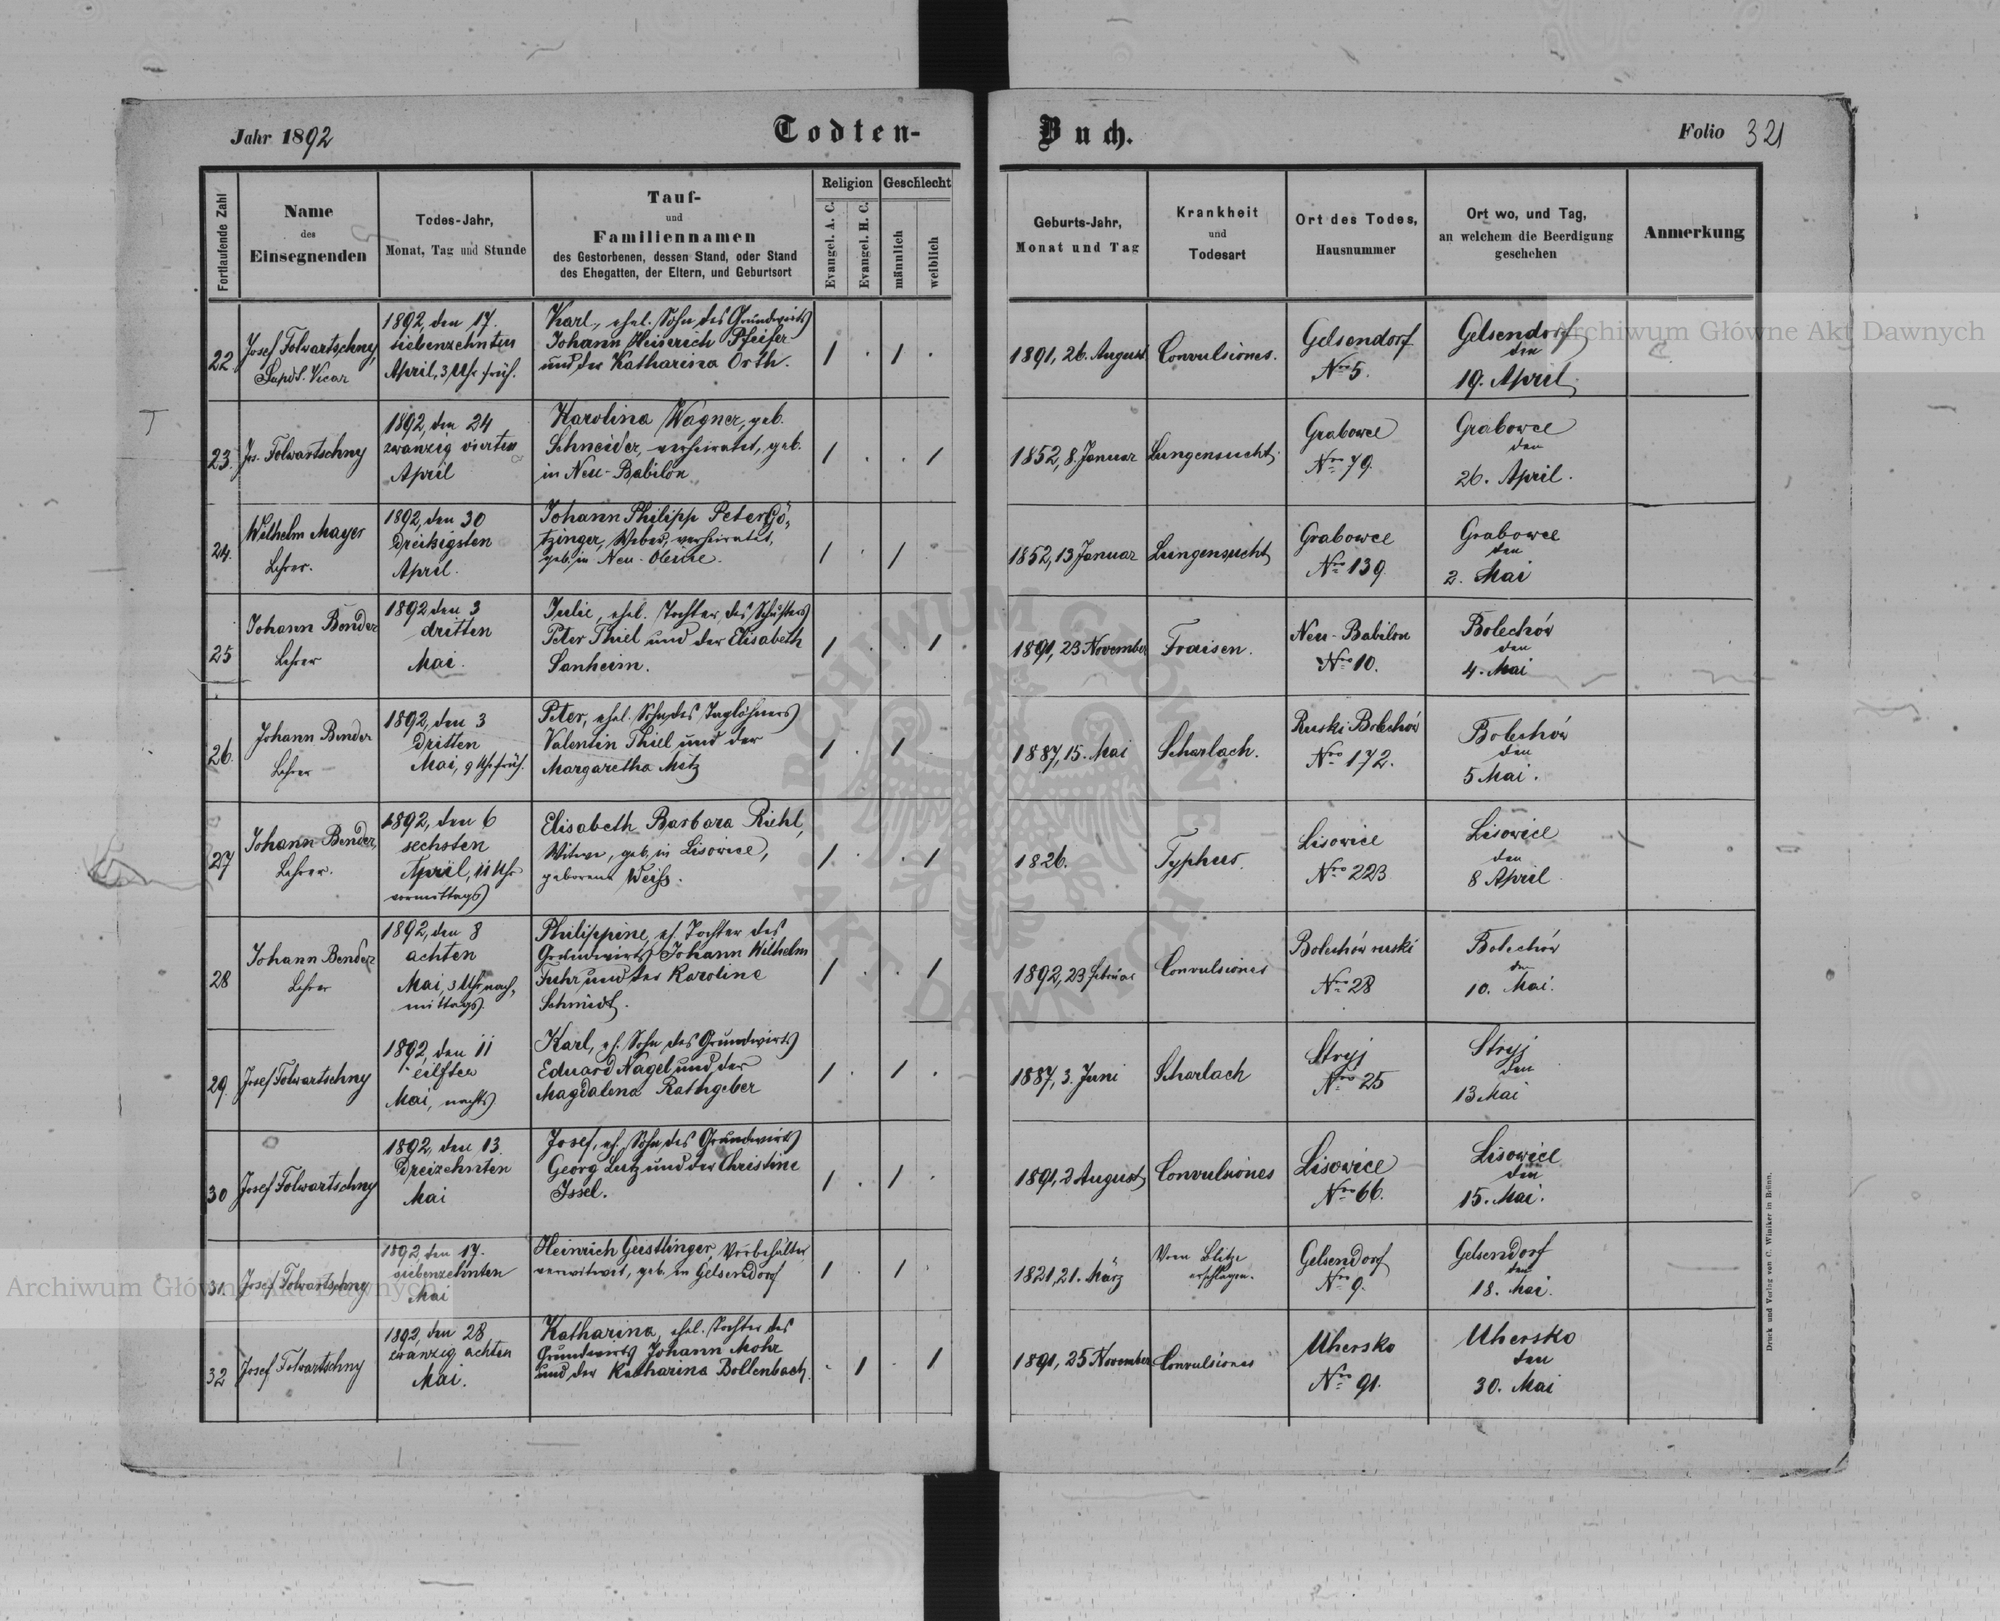 Jahr 1892
Todten-
Buch.
Folio 321
Fortlaufende Zahl
Name
des
Einsegnenden
Todes-Jahr,
Monat, Tag und Stunde
Tauf-
und
Familiennamen
des Gestorbenen, dessen Stand, oder Stand
des Ehegatten, der Eltern, und Geburtsort
Religion
Evangel. A. C.
Evangel. H. C.
Geschlecht
männlich
weiblich
Geburts-Jahr,
Monat und Tag
Krankheit
und
Todesart
Ort des Todes,
Hausnummer
Ort wo, und Tag,
an welchem die Beerdigung
geschehen
Anmerkung
22.
Josef Folwartschny,
Vicar
1892, den 17.
siebenzehnten
April, 3 Uhr früh.
Karl, ehel. Sohn des Grundwirts
Johann Heinrich Pfeifer
und der Katharina Orth.
1 . 1 .
1891, 26. August
Convulsiones.
Gelsendorf
Nro 5.
Gelsendorf
den
19. April.
23.
Jos. Folwartschny
1892, den 24
zwanzig vierten
April
Karolina Wagner, geb.
Schneider, verheiratet, geb.
in Neu-Babilon
1 . . 1
1852, 8. Januar
Lungensucht.
Grabowce
Nro 79.
Grabowce
den
26. April.
24.
Wilhelm Mayer
Lehrer.
1892, den 30
Dreißigsten
April.
Johann Philipp Peter Gö-
tzinger, Weber, verheiratet,
geb. in Neu-Oleine.
1 . 1
1852, 13 Januar
Lungensucht
Grabowce
Nro 139.
Grabowce
den
2. Mai
25
Johann Bender
Lehrer
1892 den 3
dritten
Mai.
Julie, ehel. Tochter des Schusters
Peter Thiel und der Elisabeth
Sanheim.
1 . . 1
1891, 23 November
Fraisen.
Neu-Babilon
Nro 10.
Bolechów
den
4. Mai
26.
Johann Bender
Lehrer
1892, den 3
Dritten
Mai, 9 Uhr früh.
Peter, ehel. Sohn des Taglöhners
Valentin Thiel und der
Margaretha Metz
1 . 1 .
1887, 15. Mai
Scharlach.
Ruski Bolechów
Nro 172.
Bolechów
den
5 Mai.
27
Johann Bender,
Lehrer.
1892, den 6
sechsten
April, 11 Uhr
vormittags
Elisabeth Barbara Riehl,
Witwe, geb. in Lisowice,
geborene Weiß.
1 . . 1
1826.
Typhus.
Lisowice
Nro 223
Lisowice
den
8 April
28
Johann Bender
Lehrer
1892, den 8
achten
Mai, 3 Uhr nach-
mittags.
Philippine, eh. Tochter des
Grundwirts Johann Wilhelm
Fuhr und der Karoline
Schmidt.
1 . . 1
1892, 23 Februar
Convulsiones
Bolechów ruski
Nro 28
Bolechów
den
10. Mai.
29.
Josef Folwartschny
1892, den 11
eilften
Mai, nachts
Karl, eh. Sohn des Grundwirts
Eduard Nagel und der
Magdalena Rathgeber
1 . 1 .
1887, 3. Juni
Scharlach
Stryj
Nro 25
Stryj
den
13 Mai
30
Josef Folwartschny
1892, den 13.
Dreizehnten
Mai
Josef, eh. Sohn des Grundwirts
Georg Lutz und der Christine
Issel.
1 . 1 .
1891, 2 August
Convulsiones
Lisowice
Nro 66.
Lisowice
den
15. Mai.
31.
Josef Folwartschny
1892, den 17.
siebenzehnten
Mai
Heinrich Geistlinger, Vorbehälter,
verwitwet, geb. in Gelsendorf
1 . 1 .
1821, 21. März
Vom Blitze
erschlagen.
Gelsendorf
Nro 9.
Gelsendorf
den
18. Mai.
32
Josef Folwartschny
1892, den 28
zwanzig achten
Mai.
Katharina, ehel. Tochter des
Grundwirts Johann Mohr
und der Katharina Bollenbach.
. 1 . 1
1891, 25 November
Convulsiones
Uhersko
Nro 91.
Uhersko
den
30. Mai
Druck und Verlag von C. Winiker in Brünn.
Archiwum Główne Akt Dawnych
Archiwum Główne Akt Dawnych
ARCHIWUM GŁÓWNE AKT DAWNYCH